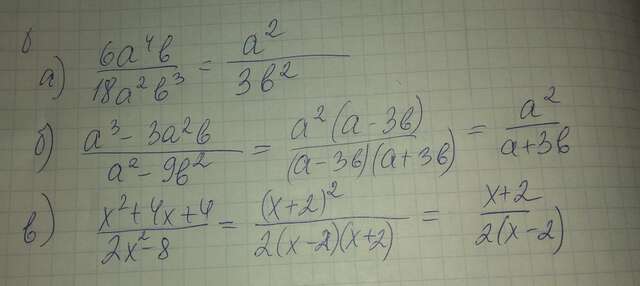 б
а) 6a⁴b/18a²b³ = a²/3b²
б) a³ - 3a²b/a² - 9b² = a²(a - 3b)/(a - 3b)(a + 3b) = a²/a + 3b
в) x² + 4x + 4/2x² - 8 = (x + 2)²/2(x - 2)(x + 2) = x + 2/2(x - 2)